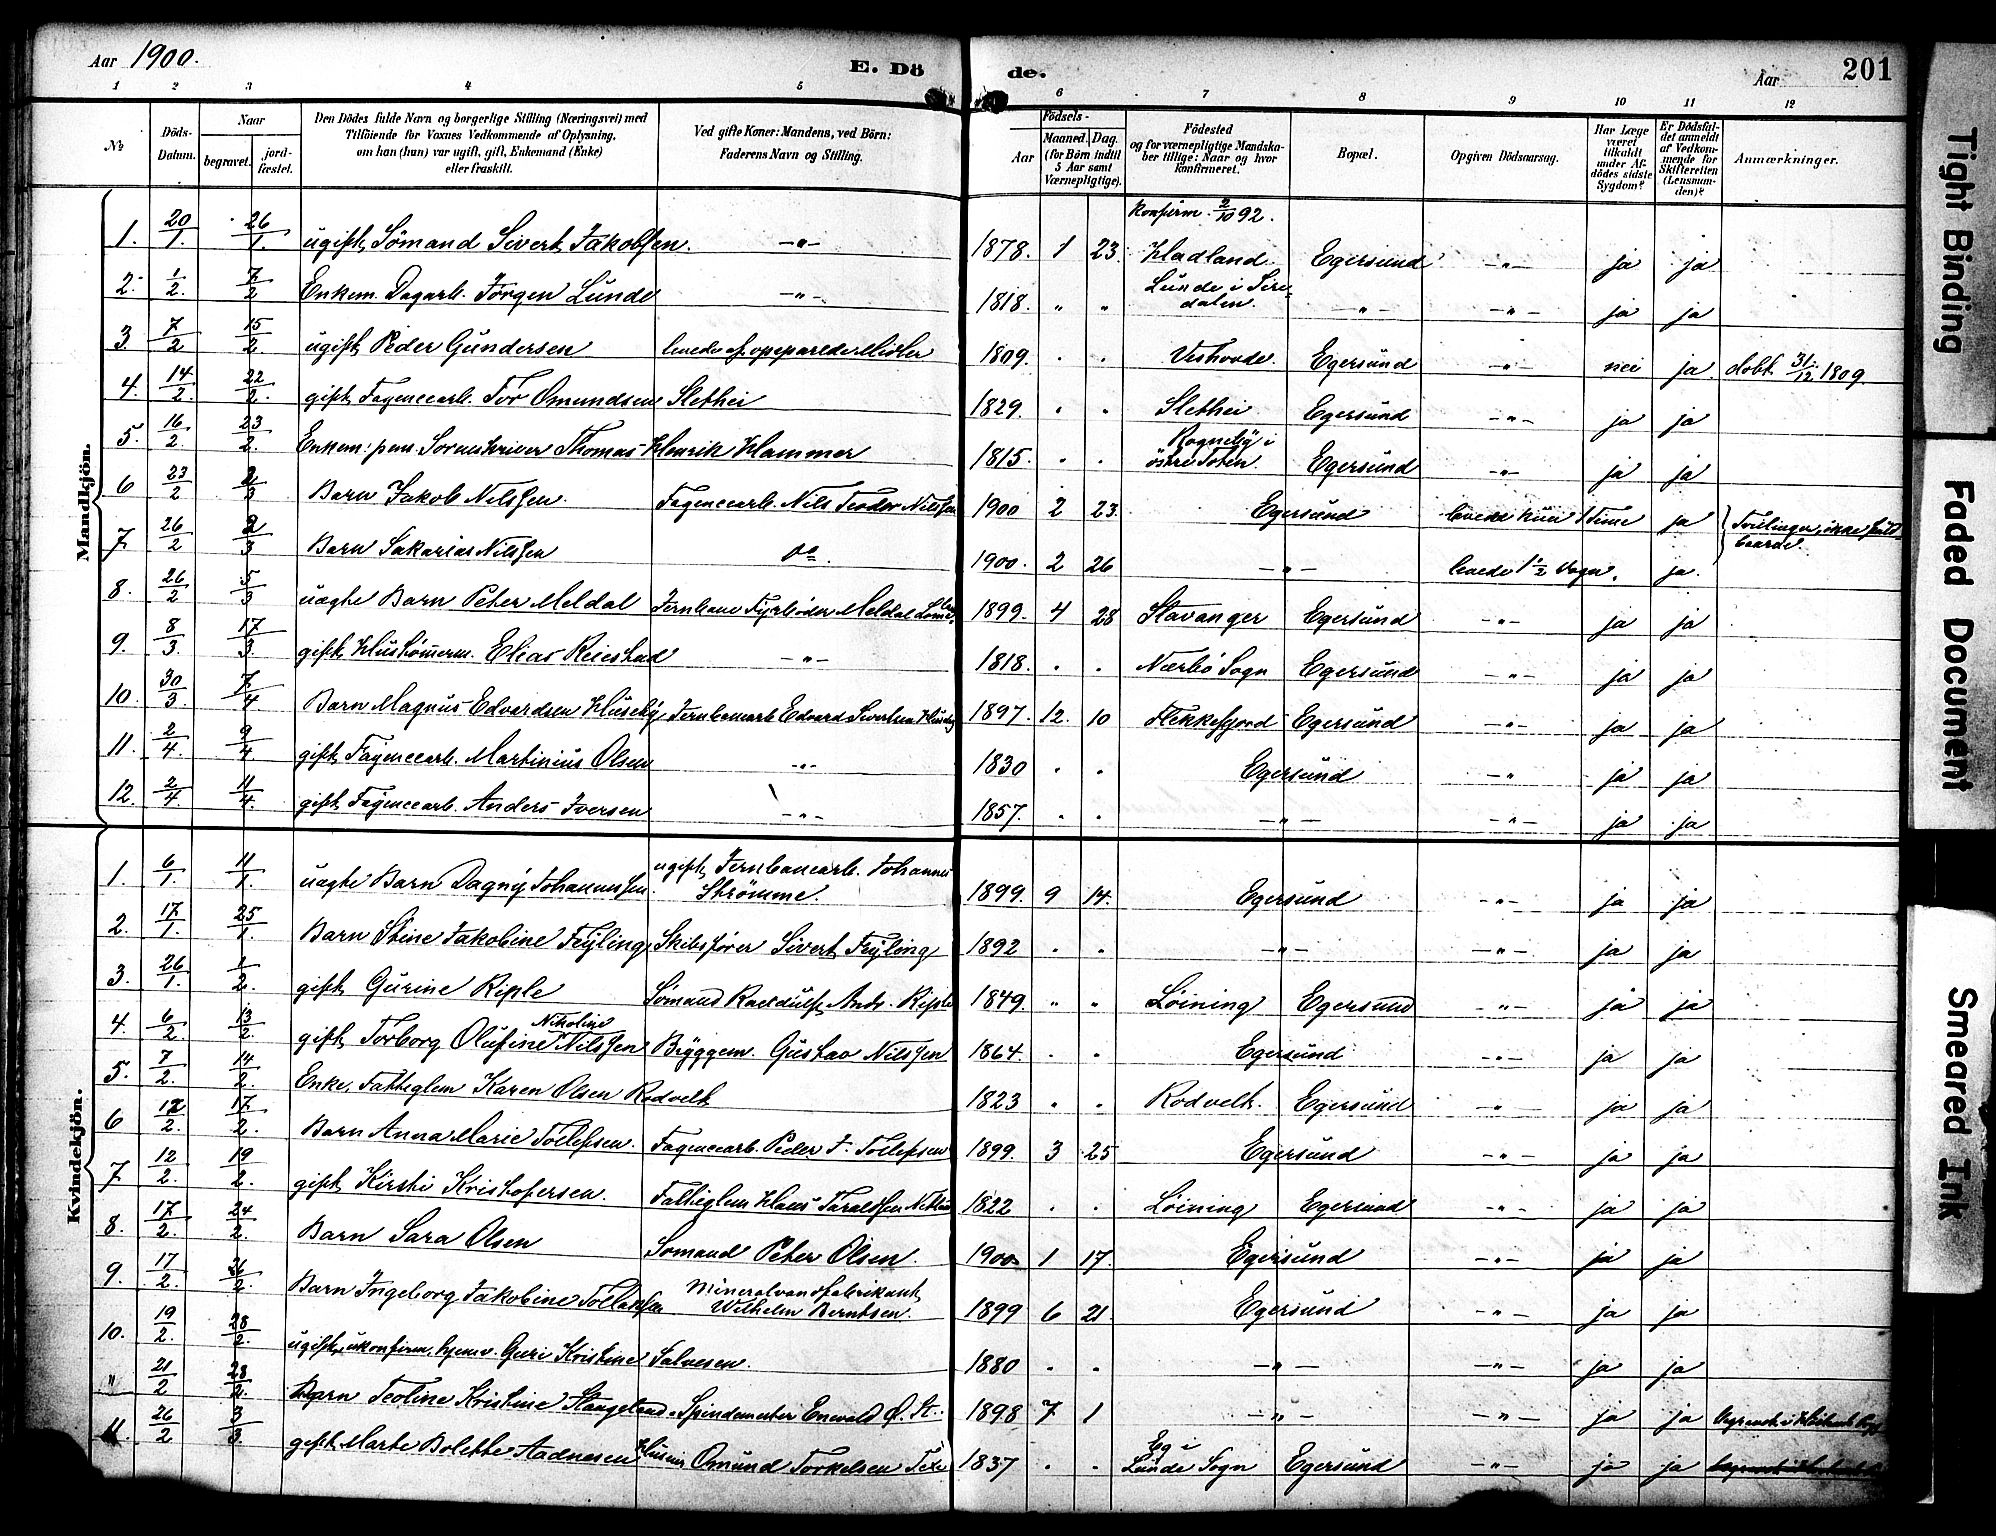 Aar 1900.
E. Döde.
Aar
201
1 2 3 4 5 6 7 8 9 10 11 12
No
Döds-Datum.
Naar
begravet.
jord-fæstet.
Den Dödes fulde Navn og borgerlige Stilling (Næringsvei) med
Tilföiende for Voxnes Vedkommende af Oplysning,
om han (hun) var ugift, gift, Enkemand (Enke)
eller fraskilt.
Ved gifte Koner: Mandens, ved Börn:
Faderens Navn og Stilling.
Födsels-
Aar
Maaned. Dag.
(for Börn indtil
5 Aar samt
Værnepligtige).
Födested
og for værnepligtige Mandska-
ber tillige: Naar og hvor
konfirmeret.
Bopæl.
Opgiven Dödsaarsag.
Har Læge
været
tilkaldt
under Af-
dödes sidste
Sygdom?
Er Dödsfal-
det anmeldt
af Vedkom-
mende for
Skifteretten
(Lensman-
den)?
Anmærkninger.
Mandkjön.
1. 20/1. 26/1. ugift Sömand Sivert Jakobsen. -"- 1878. 1 23. Konfirm. 2/10 92. Hadland. Egersund -"- ja ja
2. 1/2. 7/2 Enkem. Dagarb. Jørgen Lunde -"- 1818. " " Lunde i Siredalen. -"- -"- ja ja
3. 7/2 15/2 ugift Peder Gundersen levede af opsparede Midler 1809. . . Vestvode. Egersund -"- nei ja døbt 31/12. 1809.
4. 14/2. 22/2. gift Fayencearb. Tor Omundsen Slethei 1829. . . Slethei Egersund -"- ja ja
5. 16/2. 23/2. Enkem: pens. Sorenskriver Thomas Henrik Hammer 1815. . . Rognebÿ i östre Toten. Egersund -"- ja ja
6 23/2 2/3 Barn Jakob Nilssen. Fayencearb. Nils Teodor Nilssen 1900 2 23. Egersund levede kun 1 Time ja Tvillinger, ikke fuldbaarne.
7. 26/2 2/3 Barn Sakarias Nilssen do. 1900. 2 26 -"- levede 1 1/2 Døgn. ja.
8. 26/2 5/3 uægte Barn Peter Meldal Jernbane Fyrbøder Meldal 1899. 4 28 Stavanger Egersund -"- ja ja
9. 8/3 17/3. gift Hustømmerm. Elias Reiestad -"- 1818. . . Nærbö Sogn Egersund -"- ja ja
10. 30/3. 7/4 Barn Magnus Edvardsen Husebÿ Jernbanearb. Edvard Sivertsen Husebÿ 1897. 12. 10 Flekkefjord Egersund -"- ja ja
11. 2/4. 9/4 gift Fayencearb. Martinius Olsen -"- 1830 . . Egersund -"- ja ja
12. 2/4 11/4. gift Fayencearb. Anders Iversen -"- 1857. . . -"- -"- ja ja
Kvindekjön.
1. 6/1. 11/1. uægte Barn Dagnÿ Johannessen. ugift Jernbanearb. Johannes Strömme. 1899. 9 14. Egersund -"- ja ja
2. 17/1. 25/1. Barn Stine Jakobine Feÿling Skibsfører Sivert Feÿling 1892 . . -"- -"- ja ja
3. 26/1. 1/2. gift Gurine Riple Sömand Andr. Riple 1849. " " Løining Egersund -"- ja ja
4. 6/2 13/2. gift Torborg Olufine Nikoline Nilssen Brÿggem. Gustav Nilssen 1864. . . Egersund -"- ja ja
5. 7/2. 14/2. Enke, Fattiglem Karen Olsen Rodvelt 1823 . . Rodvelt. Egersund -"- ja ja
6 12/2. 17/2. Barn Anna Marie Tollefsen. Fayencearb. Peder T. Tollefsen 1899. 3 25 Egersund -"- ja ja
7 12/2. 19/2. gift Kirsti Kristofersen. Fattiglem Klaus Taraldsen 1822 . . Løining Egersund -"- ja ja
8. 17/2. 24/2. Barn Sara Olsen Sömand Peter Olsen. 1900 1 17. Egersund -"- ja ja
9. 17/2. 26/2. Barn Ingeborg Jakobine Tollaksen Mineralvandfabrikant Wilhelm Berntsen. 1899 6 21. Egersund -"- ja ja
10. 19/2. 28/2. ugift, ukonfirm. hjemv. Guri Kristine Salvesen. 1880 . . -"- -"- ja ja
" 21/2 28/2. Barn Teoline Kristine Stangeland Spindemester Enevald Ø. St.. 1898 7 1 -"- -"- ja ja
11. 26/2 3/3. gift Marte Bolette Aadnesen Husm. Omund Torkelsen 1837 . . Eg i Lunde Sogn Egersund -"- ja ja
Tight Binding
Faded Document
Smeared Ink